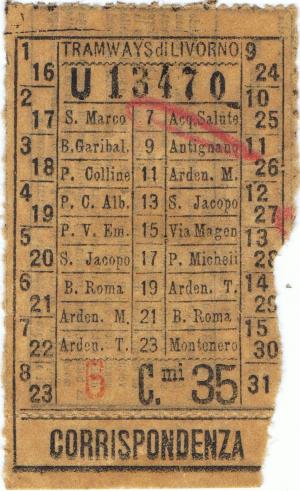 1 TRAMWAYS di LIVORNO 9
16 U 13470 24
2 10
17 S. Marco 7 Acq. Salute 25
3 11
18 B. Garibal. 9 Antignano 26
P. Colline 11 Arden. M.
4 12
19 P. C. Alb. 13 S. Jacopo 27
5 13
20 P. V. Em. 15 Via Magen 28
S. Jacopo 17 P. Micheli
6 14
21 B. Roma 19 Arden. T. 29
7 15
22 Arden. M. 21 B. Roma 30
Arden. T. 23 Montenero
8
23 6 C.mi 35 31
CORRISPONDENZA